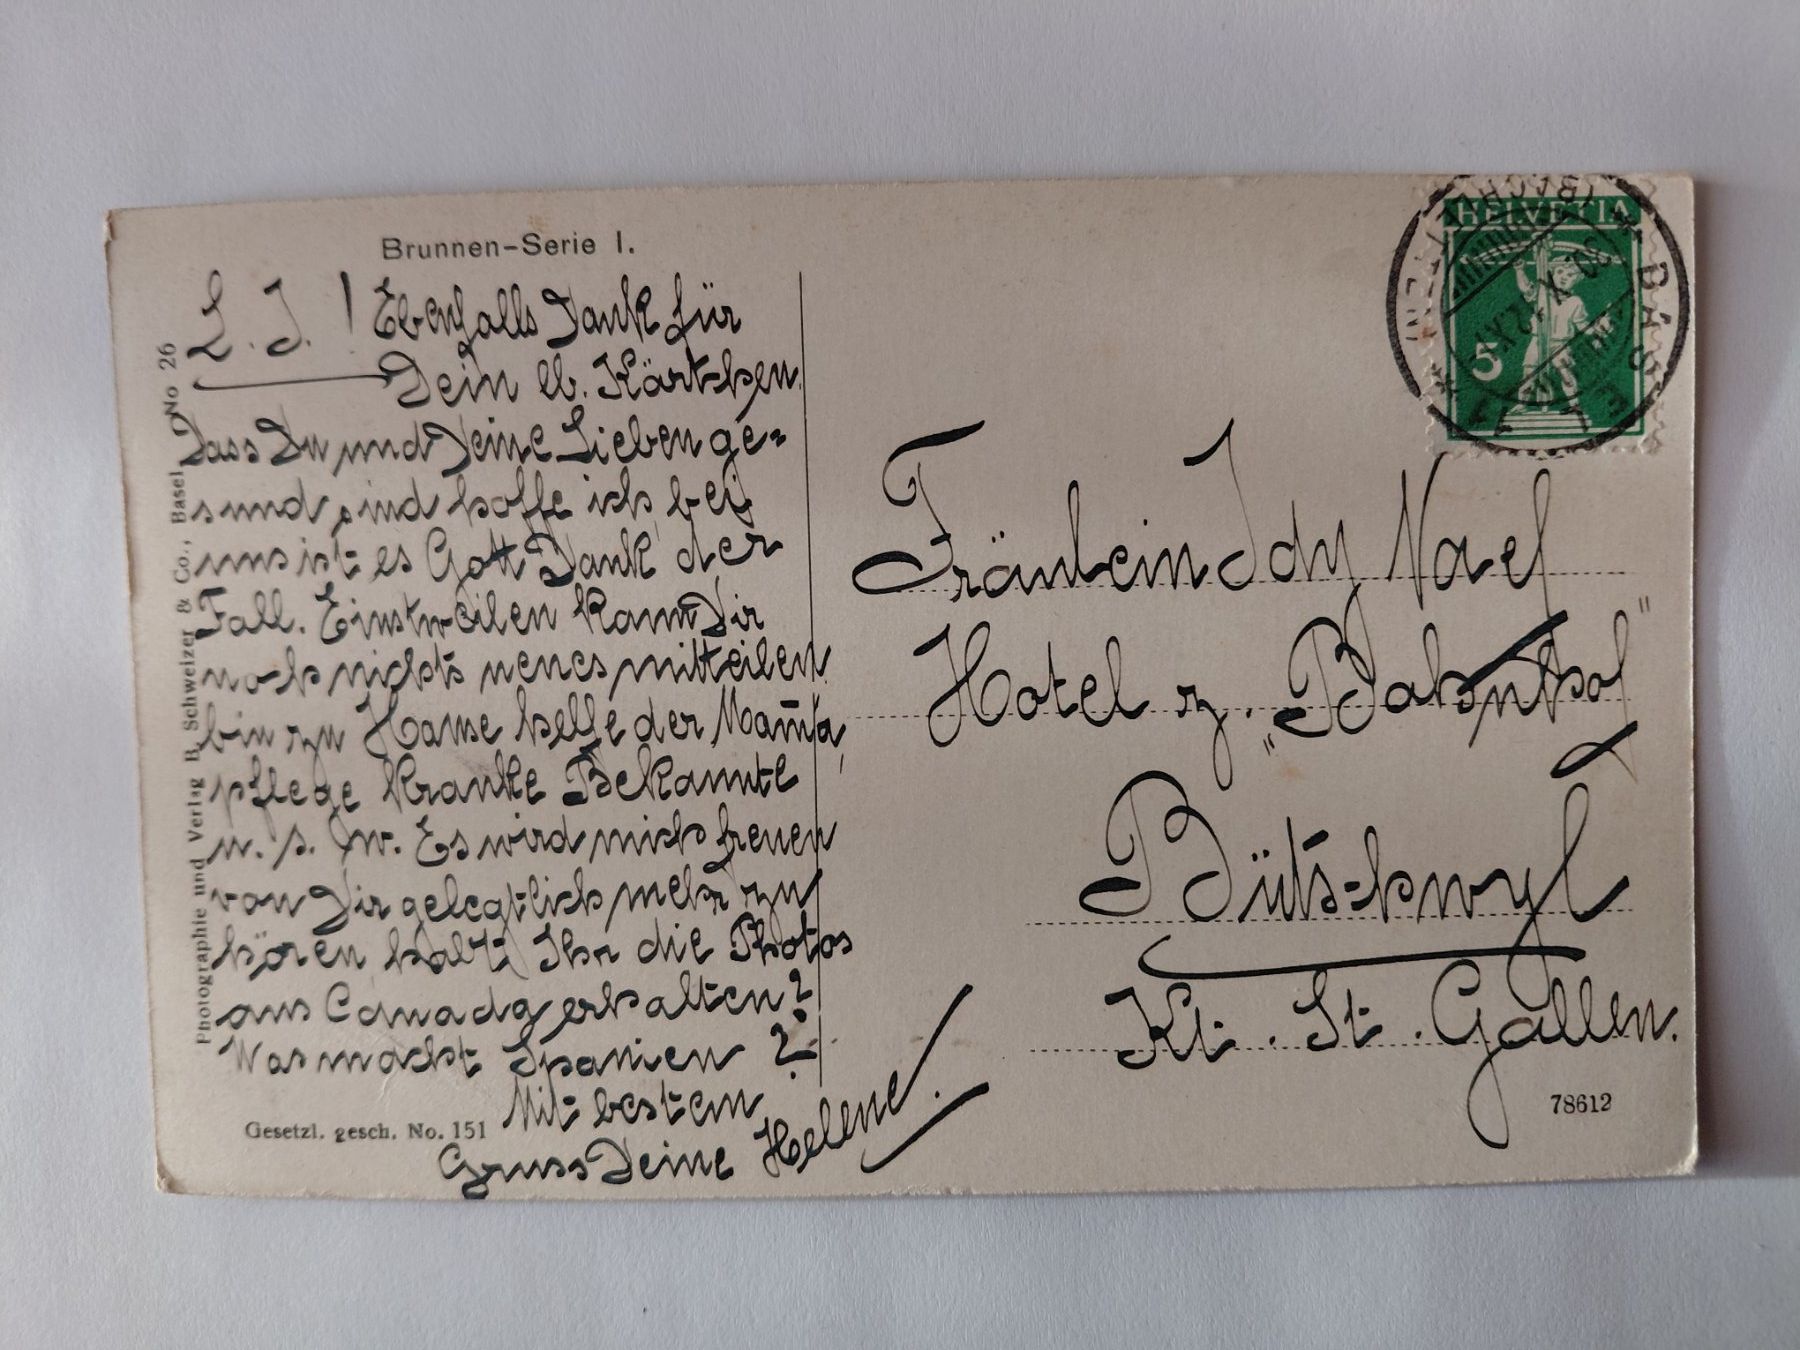 Brunnen-Serie I.
L. I. ! Ebenfalls Dank für
Dein lb. Kärtchen.
Dass Du und Deine Lieben ge=
sund sind hoffe ich bei
uns ist es Gott Dank der
Fall. Einstweilen kann Dir
noch nichts neues mitteilen
bin zu Hause helfe der Mam̄a,
pflege kranke Bekannte
u. s. w. Es wird mich freuen
von Dir gelegtlich mehr zu
hören habt Ihr die Photos
aus Canada erhalten?
Was macht Spanien?
Mit bestem
Gruss Deine Helene.
Gesetzl. gesch. No. 151
Photographie und Verlag B. Schweizer & Co., Basel No 26
HELVETIA
5
BASEL
Fräulein Idy Naef
Hotel z. „Bahnhof"
Bütschwyl
Kt. St. Gallen.
78612